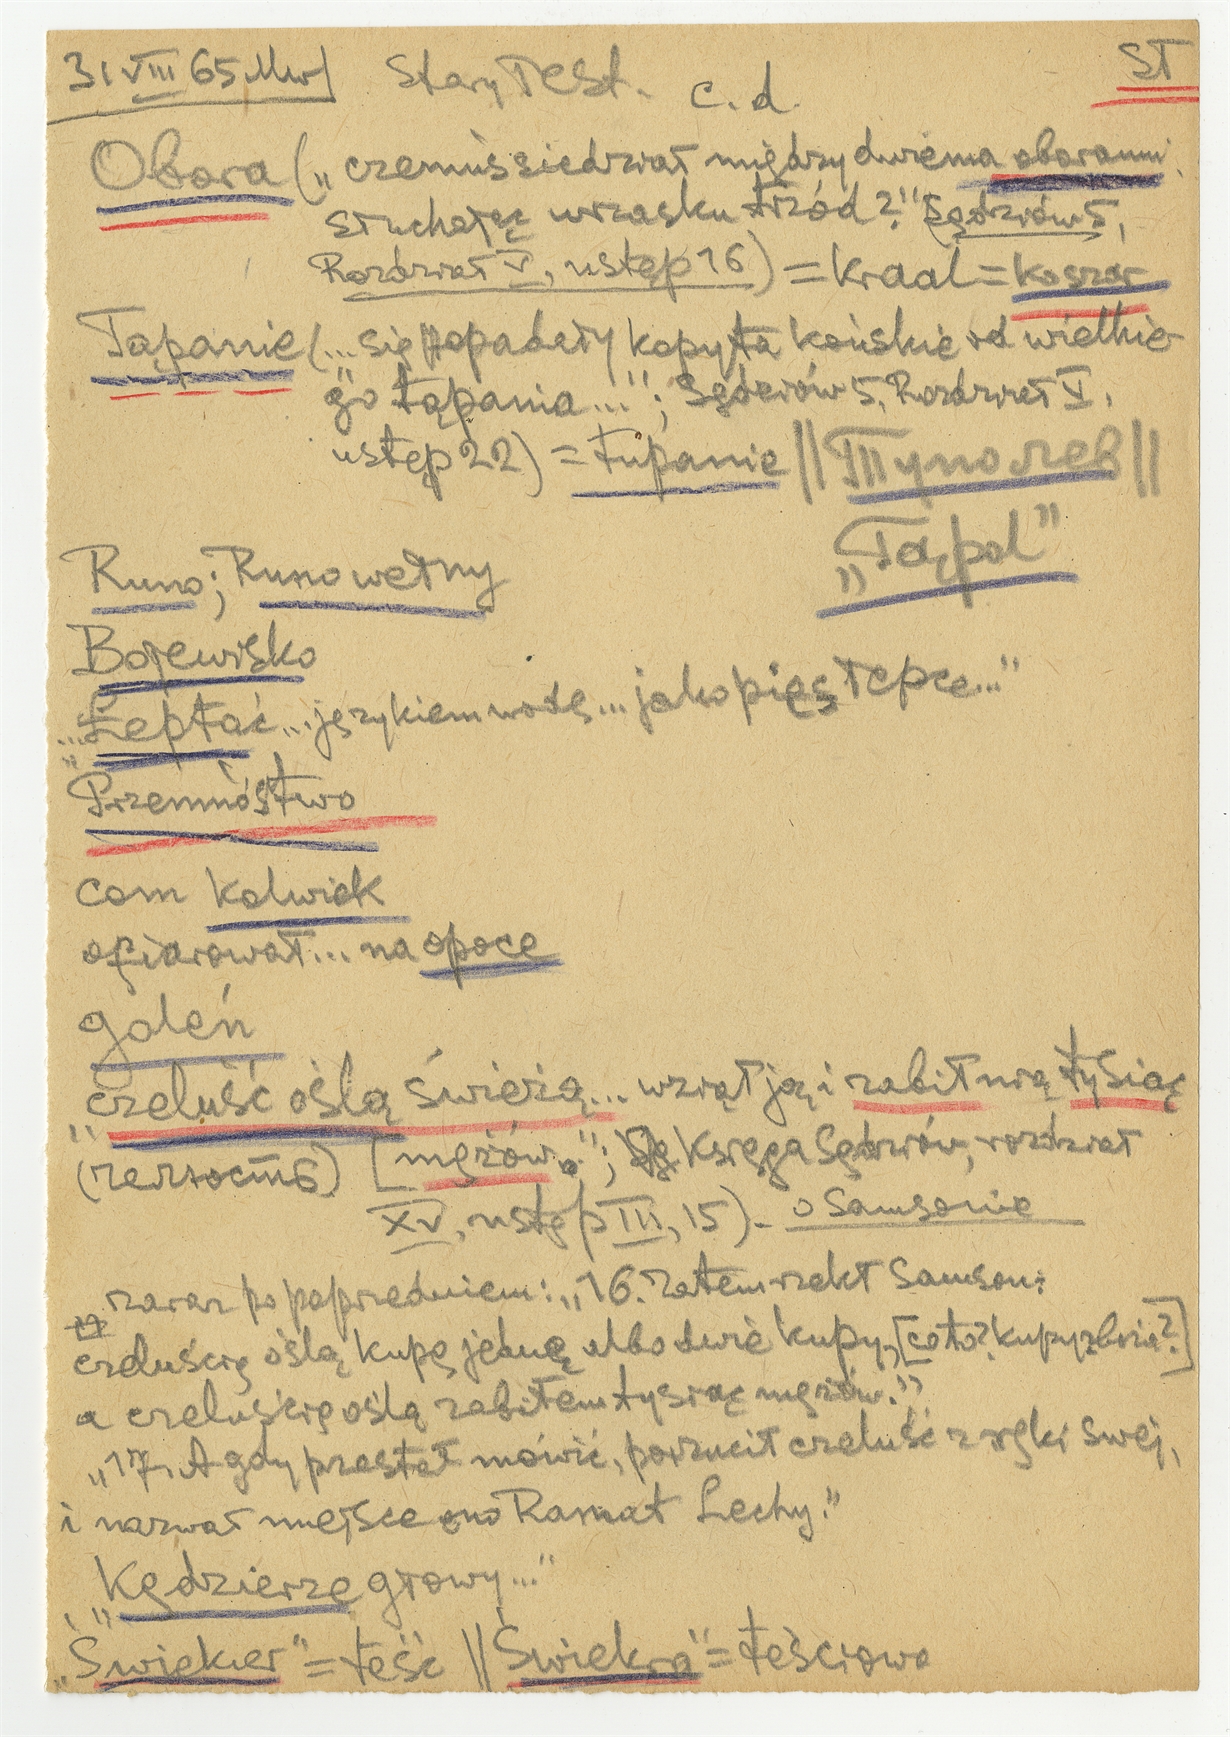 31 VIII 65 Mw Stary Test. c.d. ST
Obora („czemuś siedział między dwiema oborami
słuchając wrzasku trzód?” (Sędziów 5,
Rozdział V, ustęp 16) = Kraal = koszar
Tąpanie (... się popadały kopyta końskie od wielkie-
go tąpania...”; Sędziów 5, Rozdział V,
ustęp 22) = tupanie || Туполев ||
„Tąpol”
Runo; Runo wełny
Bojewisko
...„Łeptać... językiem wodę... jako pies łepce...”
Przemóstwo
com kolwiek
ofiarował... na opoce
goleń
„czeluść oślą świeżą... wziął ją i zabił nią tysiąc
(челюсть) [mężów.”; Księga Sędziów, rozdział
XV, ustęp III, 15). o Samsonie
zaraz po poprzedniem: „16. Zatem rzekł Samson:
czeluścią oślą kupę jednę albo dwie kupy, [co to? kupy zboża?]
a czeluścią oślą zabiłem tysiąc mężów.”
„17. A gdy przestał mówić, porzucił czeluść z ręki swej,
i nazwał miejsce ono Ramat Lechy.”
„Kędzierze głowy...”
„Świekier” = teść || „Świekra” = teściowa